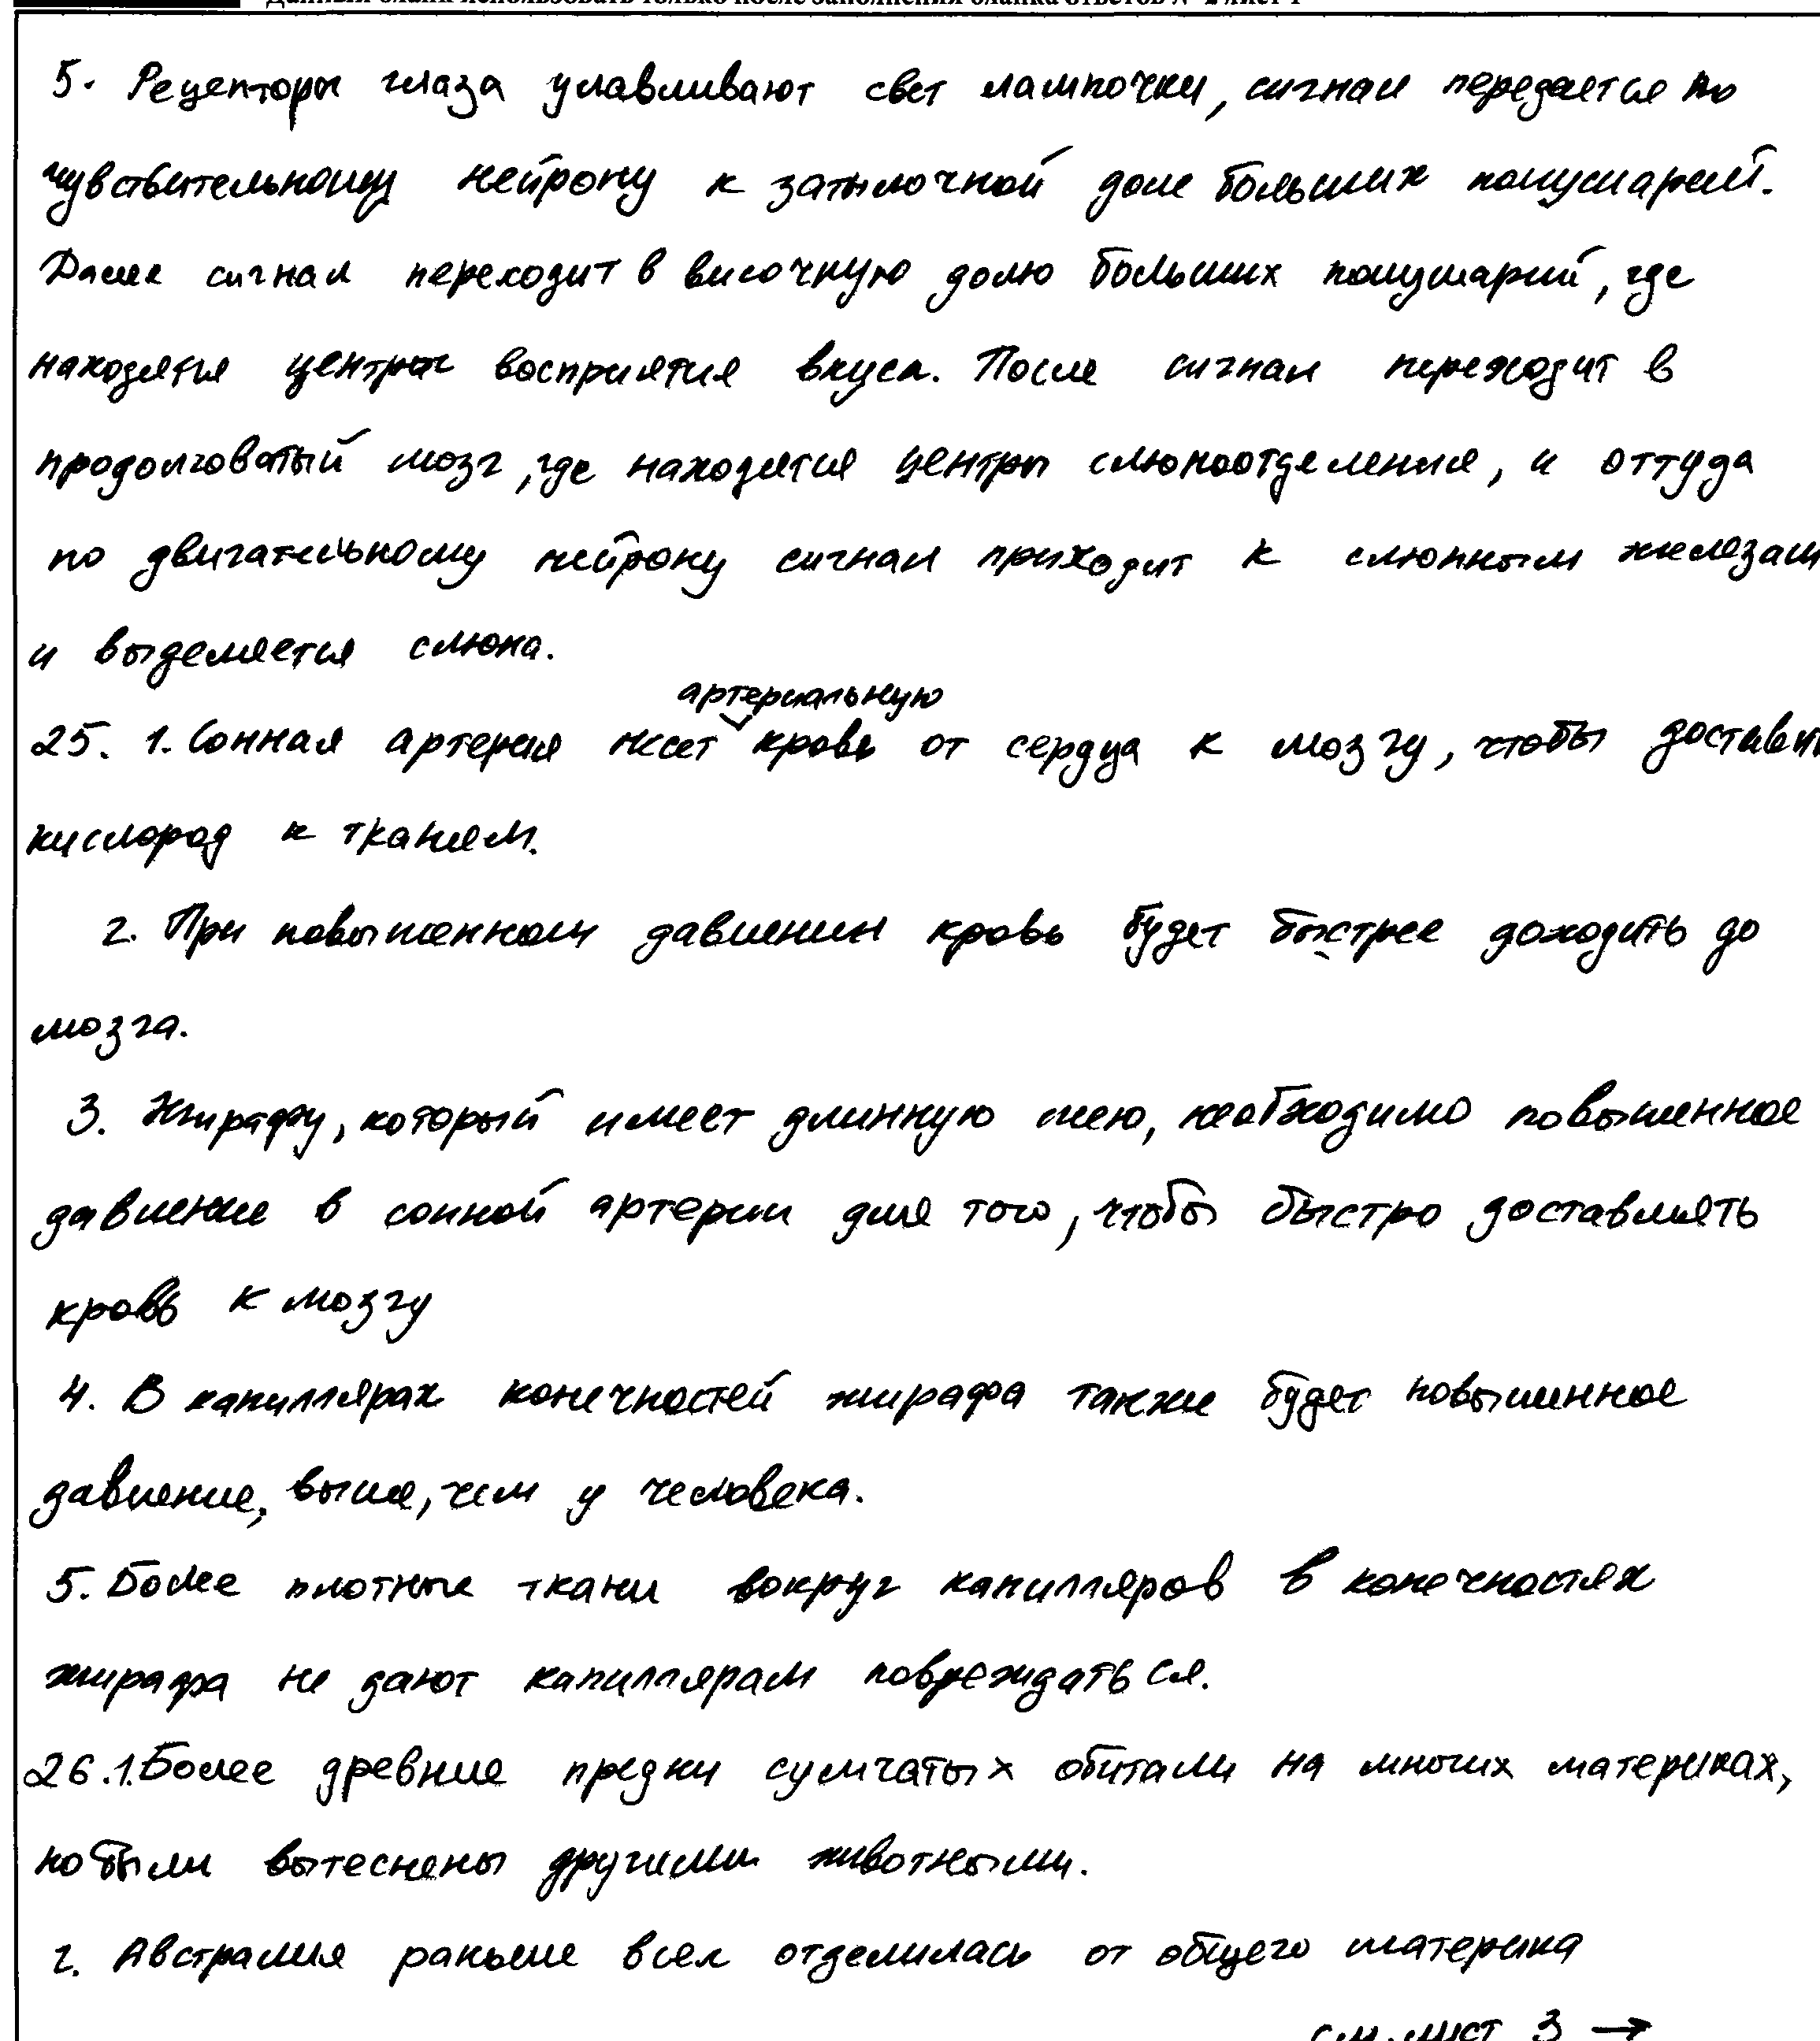 Данный бланк использовать только после заполнения бланка ответов № 2 лист 1
5. Рецепторы глаза улавливают свет лампочки, сигнал передается по
чувствительному нейрону к затылочной доле больших полушарий.
Далее сигнал переходит в височную долю больших полушарий, где
находятся центры восприятия вкуса. После сигнал переходит в
продолговатый мозг, где находятся центры слюноотделения, и оттуда
по двигательному нейрону сигнал приходит к слюнным железам
и выделяется слюна.
артериальную
25. 1. Сонная артерия несет кровь от сердца к мозгу, чтобы доставить
кислород к тканям.
2. При повышенном давлении кровь будет быстрее доходить до
мозга.
3. Жирафу, который имеет длинную шею, необходимо повышенное
давление в сонной артерии для того, чтобы быстро доставлять
кровь к мозгу
4. В капиллярах конечностей жирафа также будет повышенное
давление, выше, чем у человека.
5. Более плотные ткани вокруг капилляров в конечностях
жирафа не дают капиллярам повреждаться.
26.1. Более древние предки сумчатых обитали на многих материках,
но были вытеснены другими животными.
2. Австралия раньше всех отделилась от общего материка
см. лист 3 →